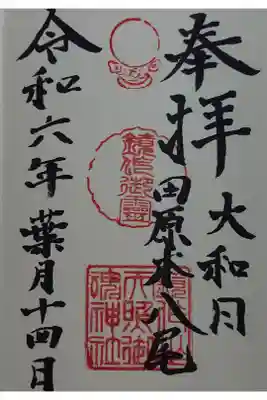 奉拝
大和国
田原本八尾
鏡作御靈
鏡作坐
天照御
魂神社
令和六年葉月十四日